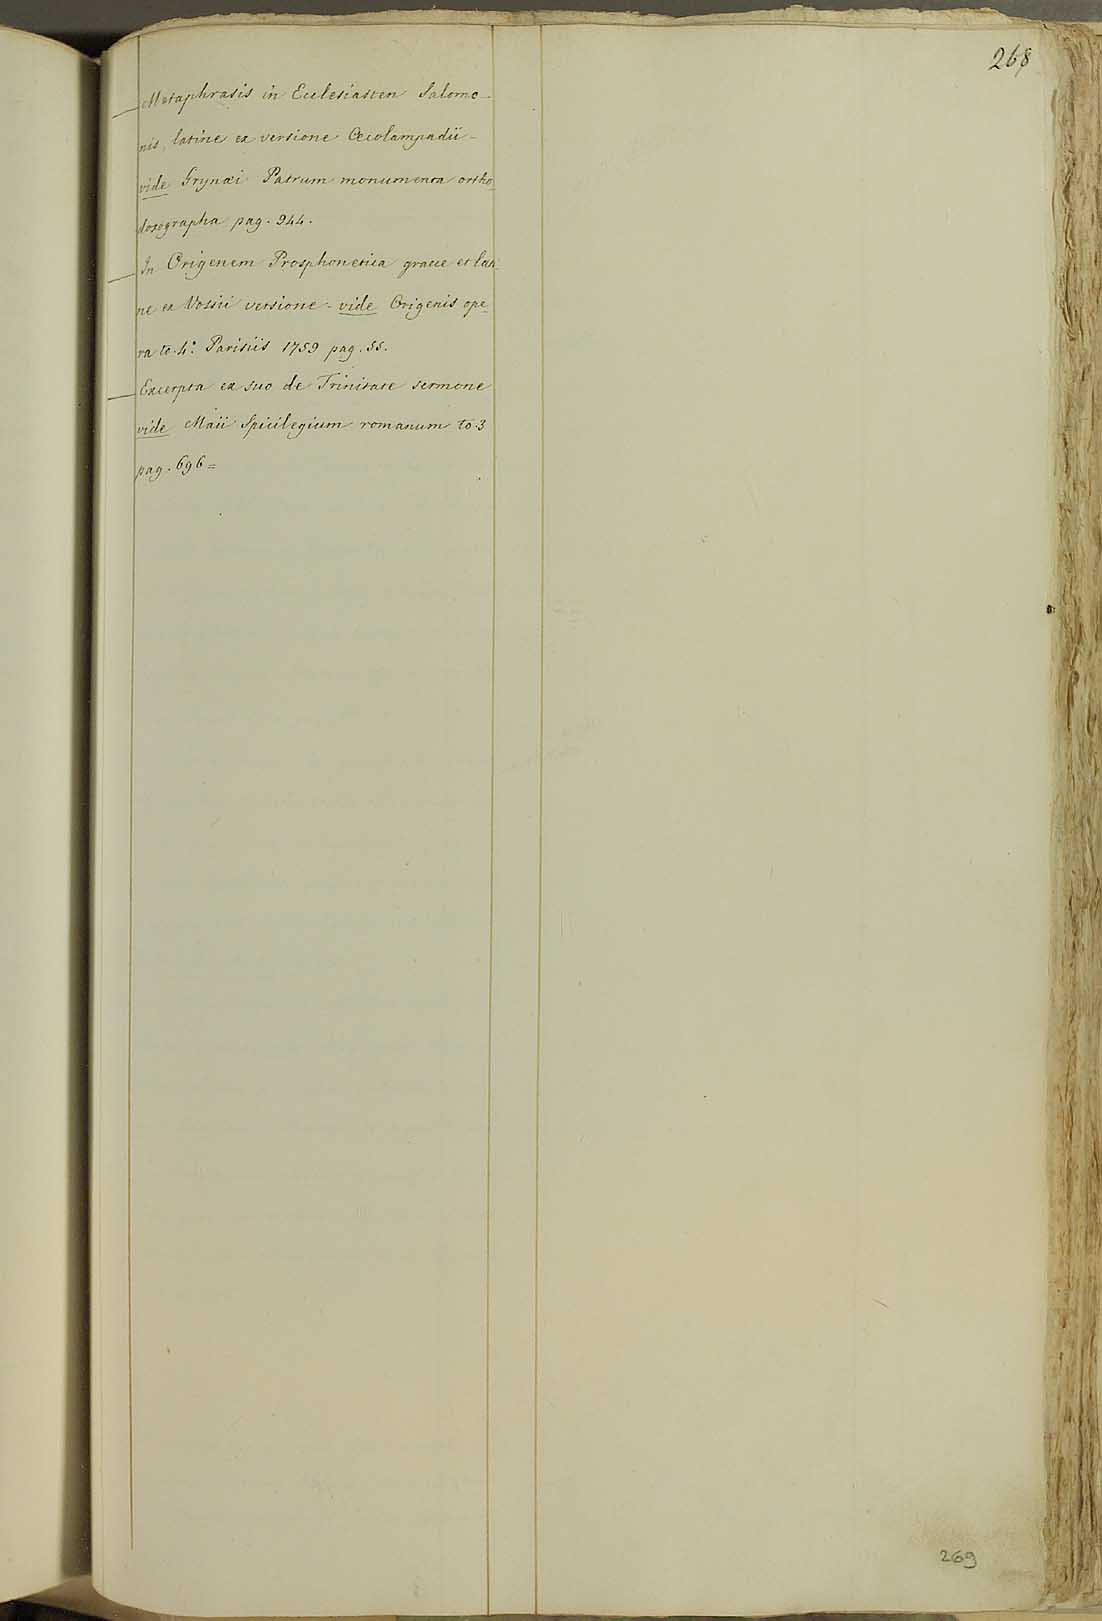 268
Metaphrasis in Ecclesiasten Salomo-
nis, latine ex versione Œcolampadii -
vide Grynæi Patrum monumenta ortho
doxographa pag. 944.
In Origenem Prosphonetica græce et lati
ne ex Vossii versione - vide Origenis ope
ra to. 4.° Parisiis 1759 pag. 55.
Excerpta ex suo de Trinitate sermone
vide Maii Spicilegium romanum to. 3
pag. 696 =
269